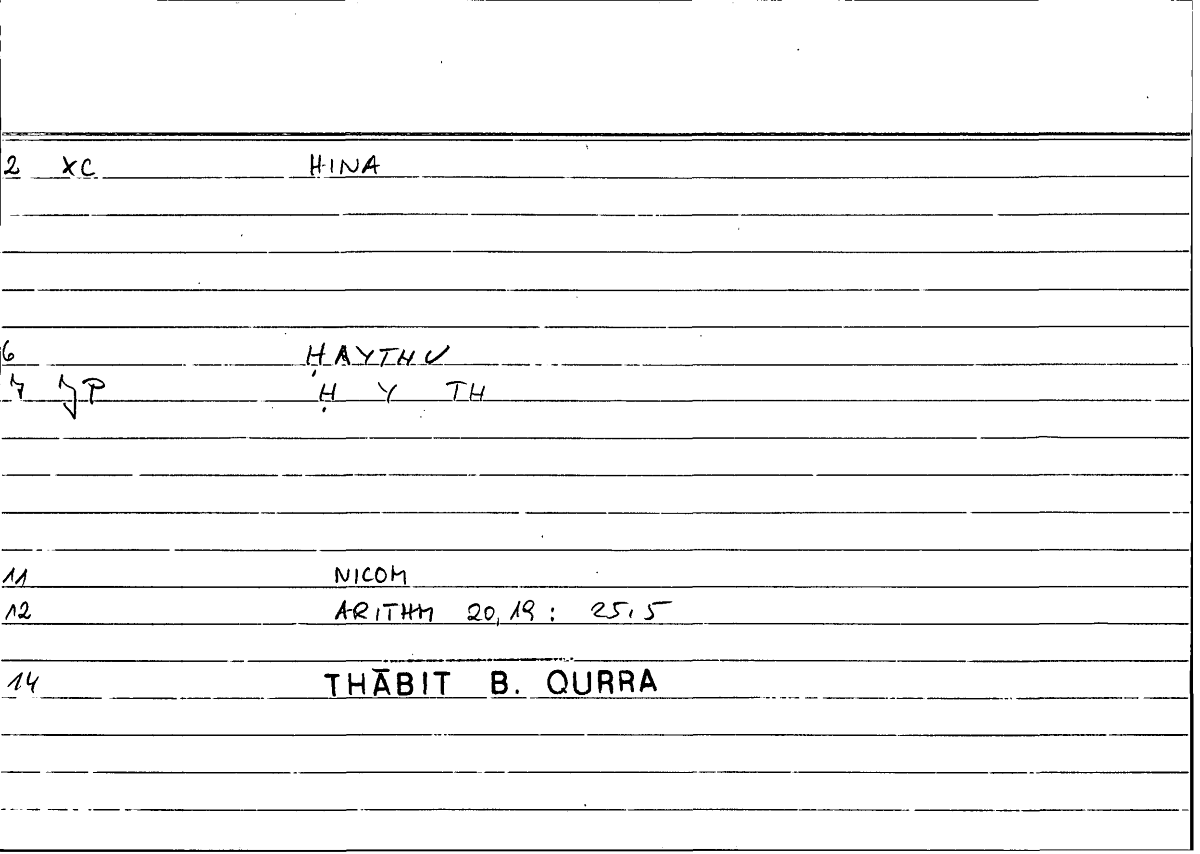 2 XC HINA
6 ḤAYTHU
7 JP Ḥ Y TH
11 NICOM
12 ARITHM 20,19: 25,5
14 THĀBIT B. QURRA